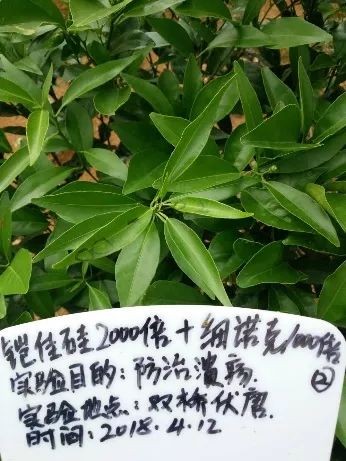 铠佳硅2000倍+细诺克1000倍
②
实验目的:防治溃疡
实验地点:双桥伏唐
时间:2018.4.12